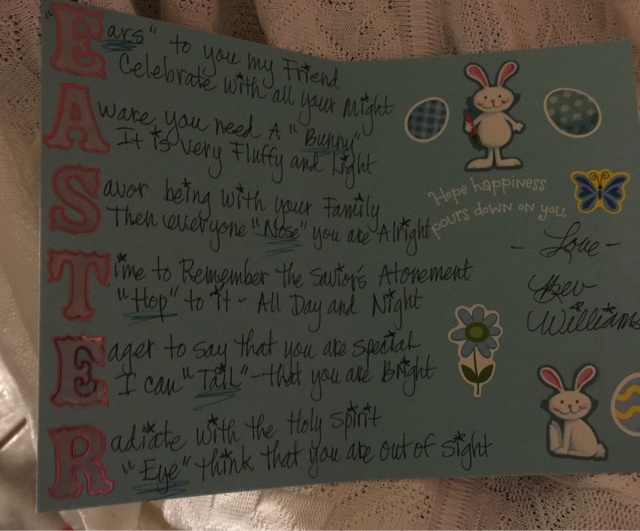 "Ears" to you my Friend
Celebrate with all your Might
Aware you need A "Bunny"
It is very Fluffy and Light
Savor being with your Family
Then everyone "Nose" you are Alright
Time to Remember the Savior's Atonement
"Hop" to it - All Day and Night
Eager to say that you are special
I can "Tail" - that you are Bright
Radiate with the Holy Spirit
"Eye" think that you are out of sight
Hope happiness
pours down on you.
- Love -
Bev
Williams